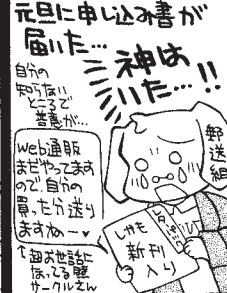 元旦に申し込み書が
届いた…
神は
いた…!!
自分の
知らない
ところで
善意が…
web通販
まだやってます
ので、自分の
買った分送り
ますねー♥
↑毎お世話に
なってる
サークルさん
郵送組
しかも
新刊
入り